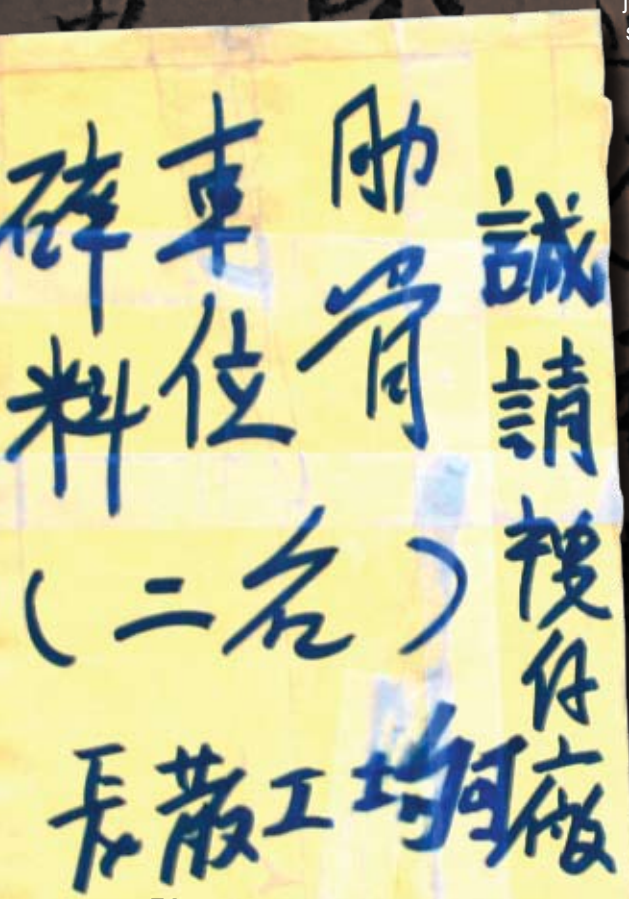 誠請褸仔廠
肋骨
車位
碎料
(二名)
長散工均可